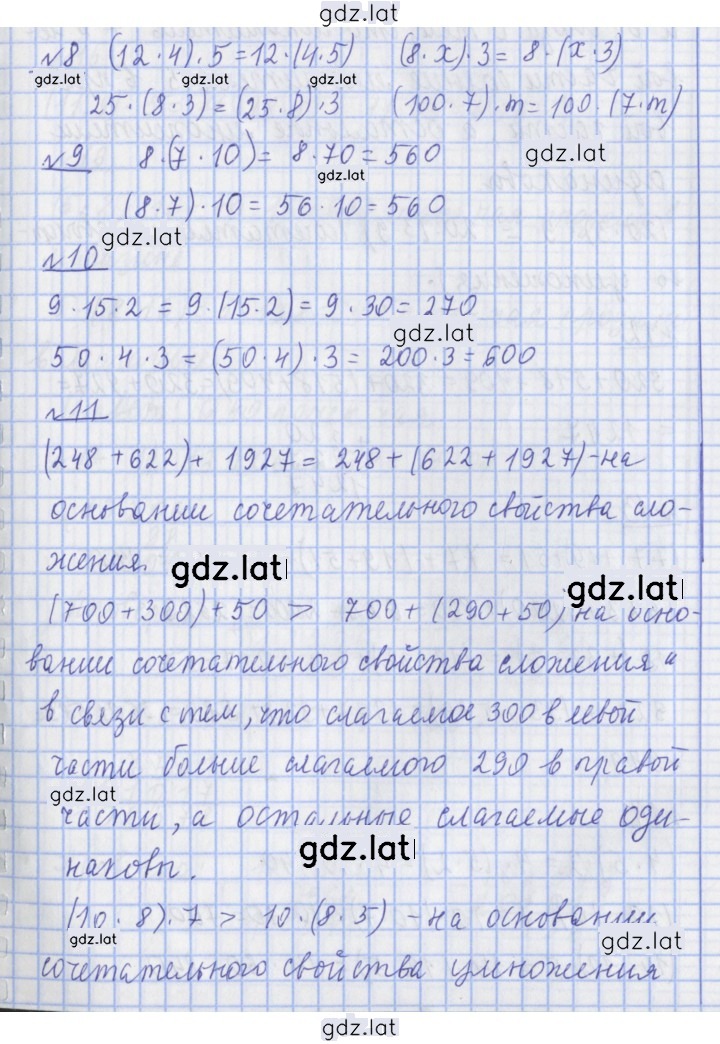 gdz.lat
№8 (12·4)·5=12·(4·5) (8·x)·3= 8·(x·3)
gdz.lat gdz.lat gdz.lat
25·(8·3)=(25·8)·3 (100·7)·m=100·(7·m)
№9 8·(7·10)= 8·70=560 gdz.lat
gdz.lat
(8·7)·10= 56·10=560
gdz.lat
№10
9·15·2 = 9·(15·2)= 9·30=270
gdz.lat
50·4·3 = (50·4)·3= 200·3=600
№11
(248+622)+ 1927= 248+(622+1927)-на
основании сочетательного свойства сло-
жения.
gdz.lat gdz.lat
(700+300)+50 > 700+(290+50) на осно-
вании сочетательного свойства сложения и
в связи с тем, что слагаемое 300 в левой
части больше слагаемого 290 в правой
gdz.lat
части, а остальные слагаемые оди-
gdz.lat
наковы.
(10·8)·7 > 10·(8·5) -на основании
gdz.lat gdz.lat
сочетательного свойства умножения
gdz.lat